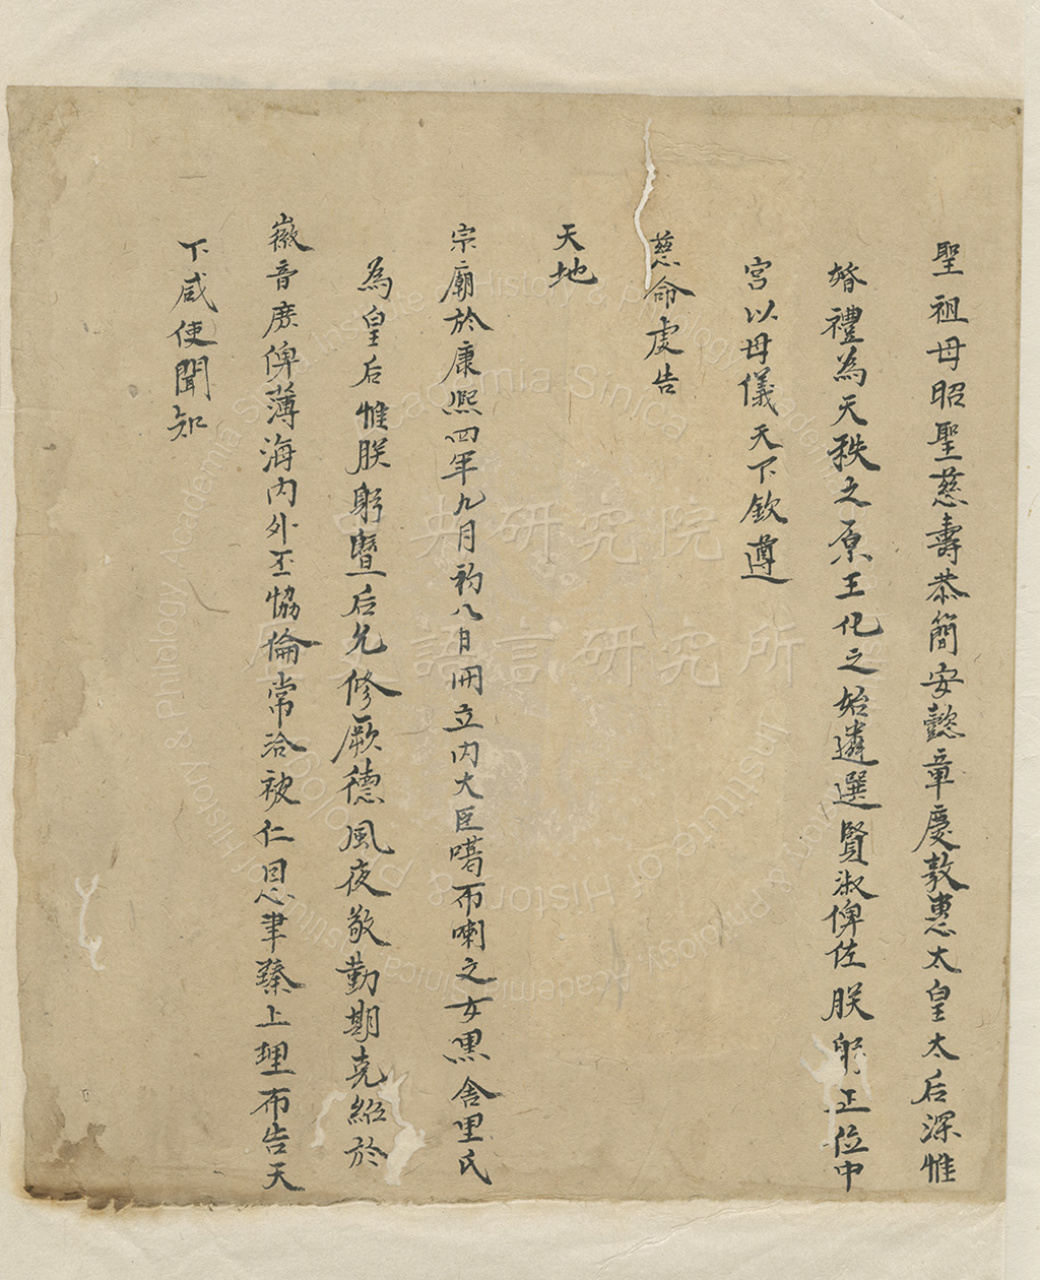 聖祖母昭聖慈壽恭簡安懿章慶敦惠太皇太后深惟
婚禮為天秩之原王化之始遴選賢淑俾佐朕躬正位中
宮以母儀天下欽遵
慈命虔告
天地
宗廟於康熙四年九月初八日冊立內大臣噶布喇之女黑舍里氏
為皇后惟朕躬暨后允修厥德夙夜敬勤期克紹於
徽音庶俾薄海內外丕協倫常洽被仁恩聿臻上理布告天
下咸使聞知
中央研究院
歷史語言研究所
Institute of History & Philology, Academia Sinica